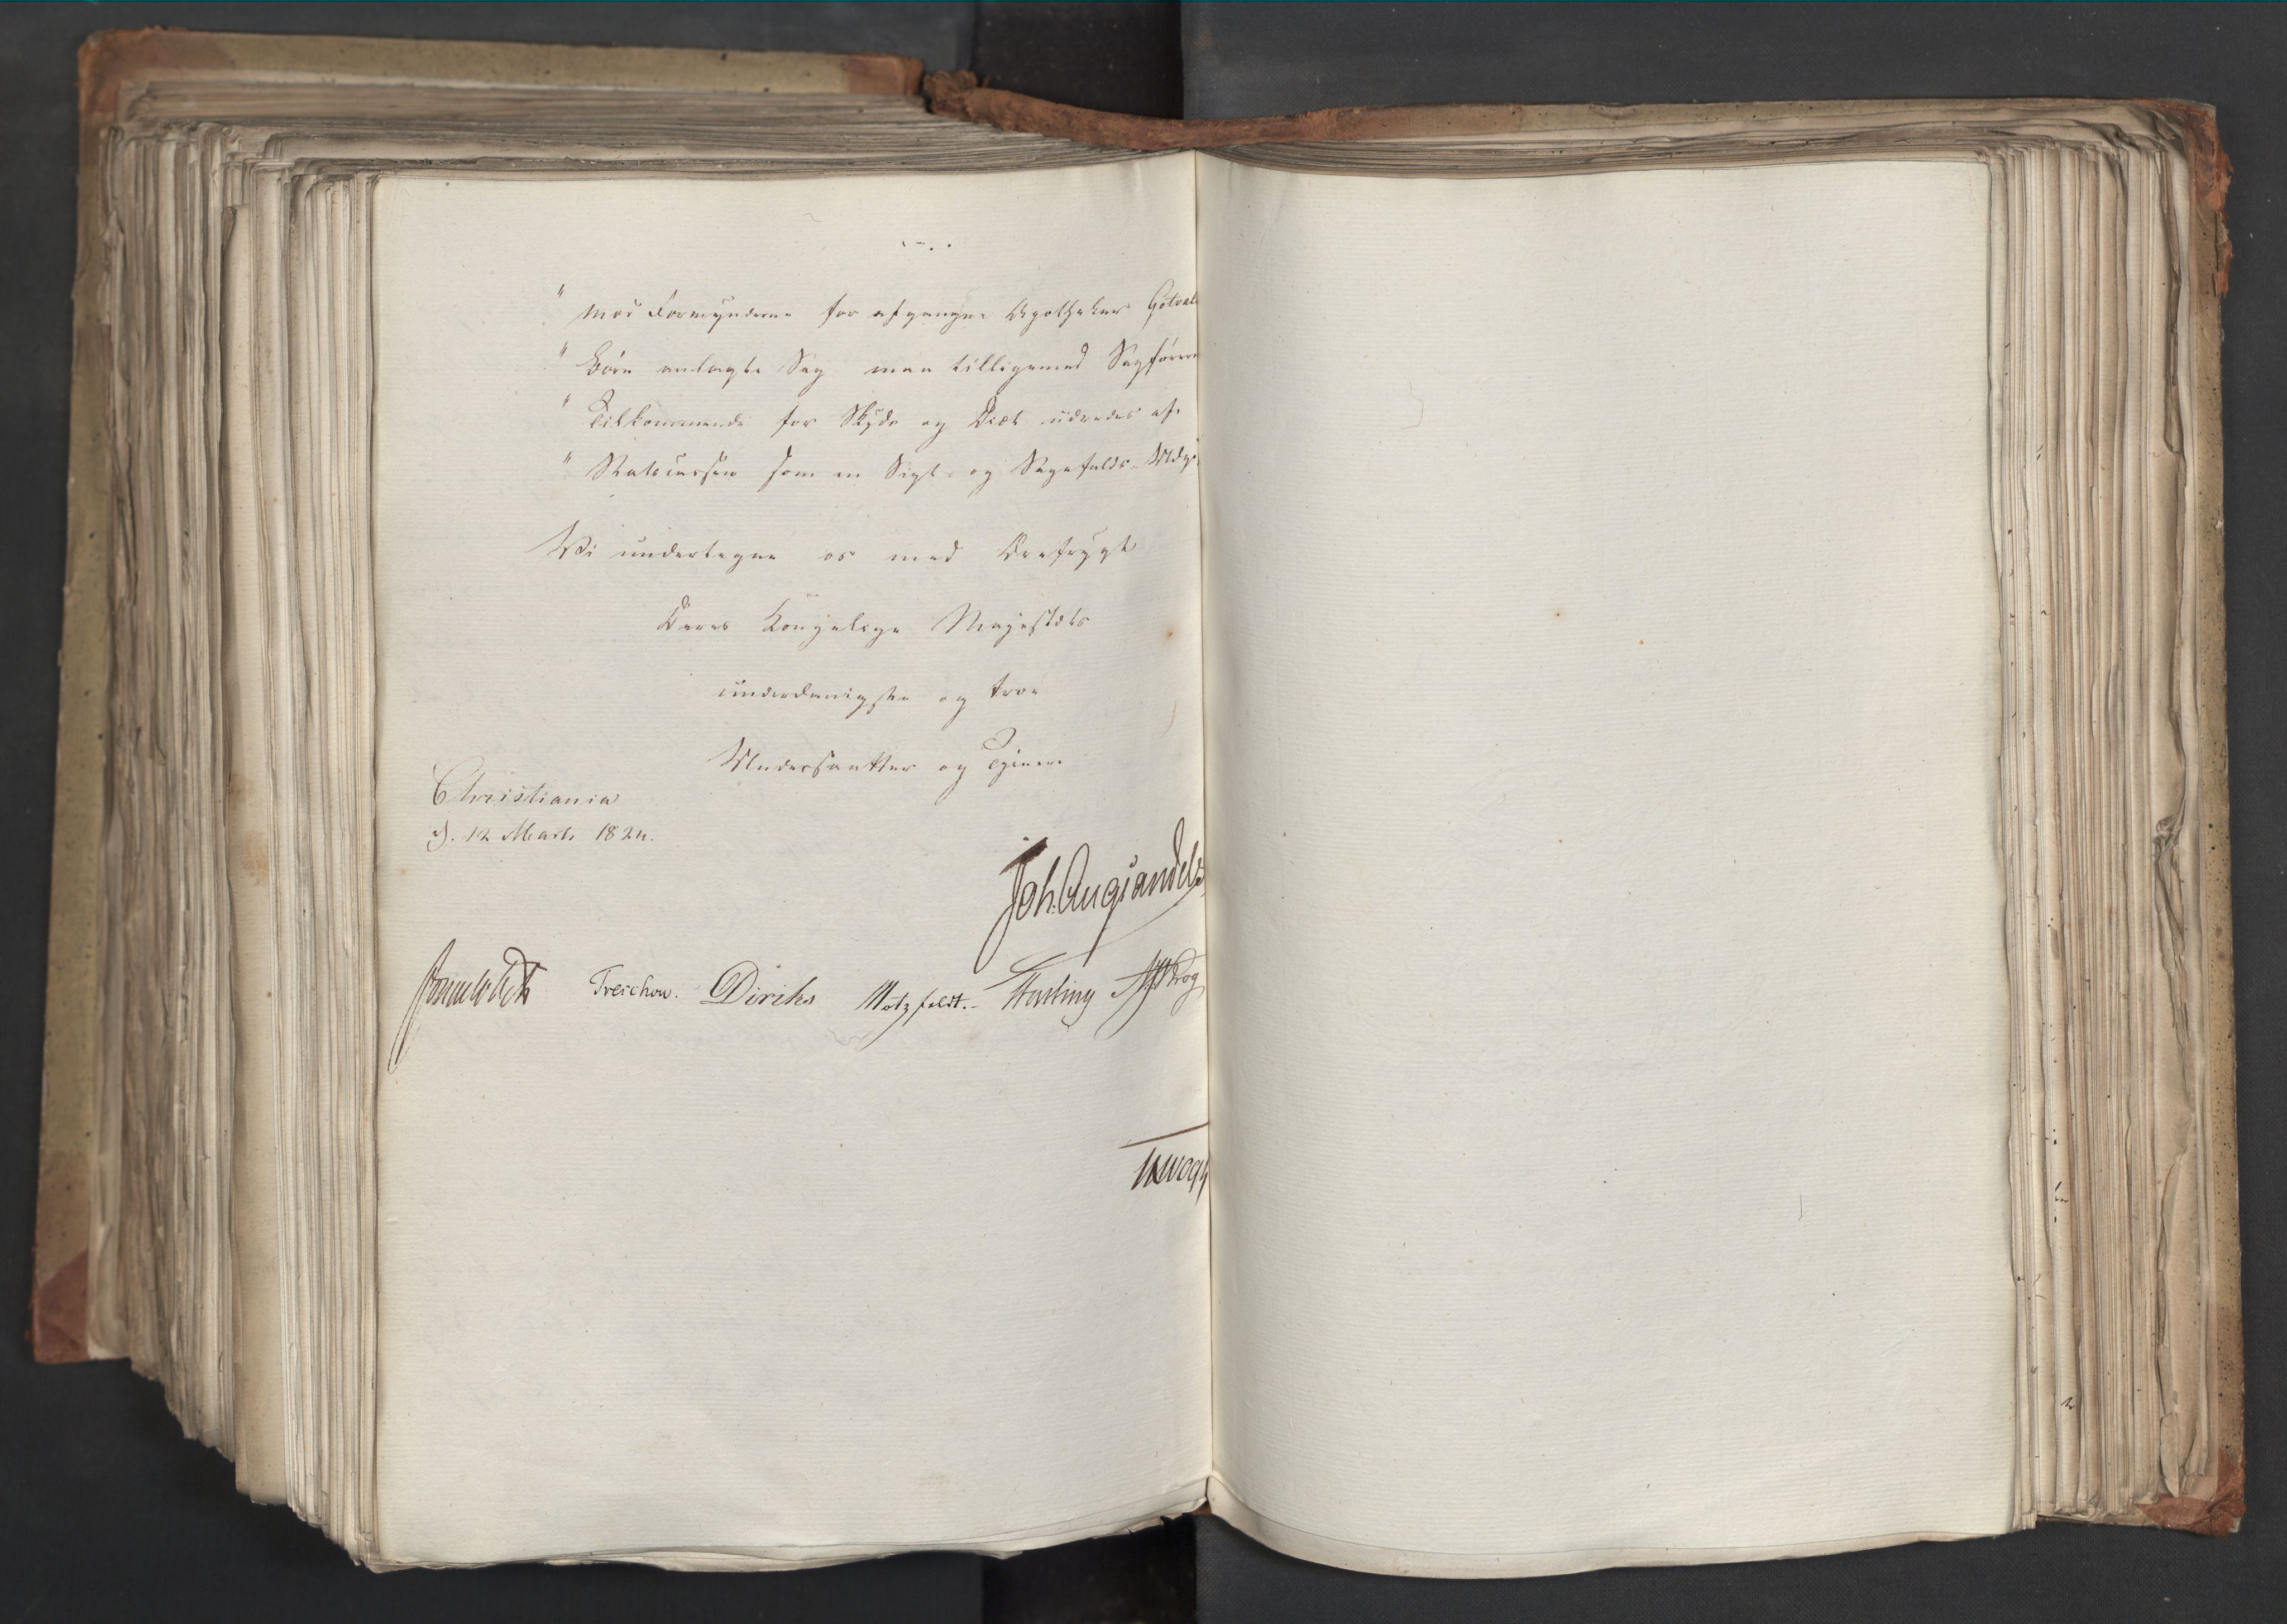 " mod Formynderne for afgangne Apotheker Gotvalds
" Børn anlagte Sag maa tilligemed Sagførere
" Tilkommende for Skyds og Diæt udredes af
" Statscassen som en Sigt- og Sagefalds-Udgi
Vi undertegne os med Ærefrygt
Deres Kongelige Majestæts
underdanigste og troe
Undersaatter og Tjenere
Christiania
d. 12 Marts 1824.
Joh. Aug. Sandels
Sommerhielm Treschow. Diriks Motzfeldt. Fasting Krog